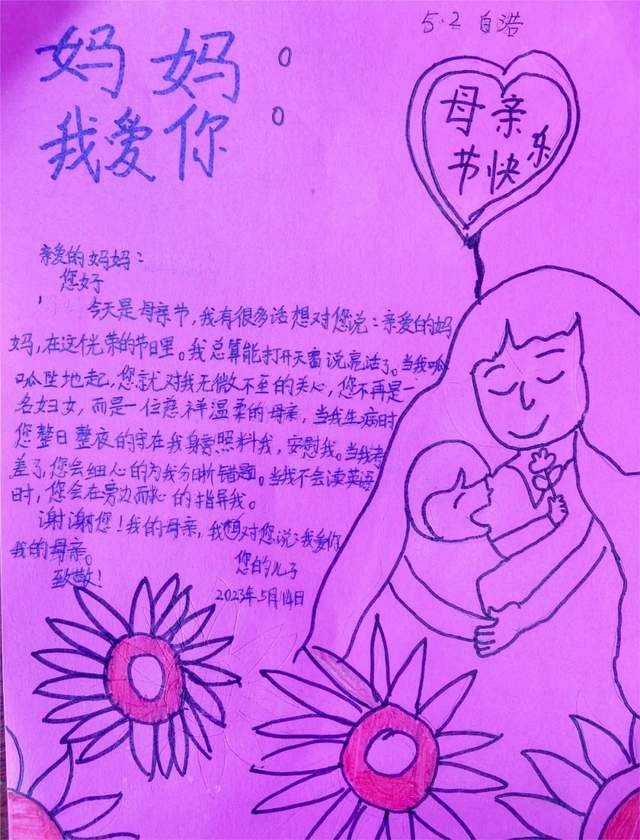 5·2 白浩
妈妈：
我爱你
母亲
节快乐
亲爱的妈妈：
您好
今天是母亲节，我有很多话想对您说：亲爱的妈
妈，在这优荣的节日里。我总算能打开天窗说亮话了。当我呱
呱坠地起，您就对我无微不至的关心，您不再是一
名妇女，而是一位慈祥温柔的母亲，当我生病时
您整日整夜的守在我身旁照料我，安慰我。当我考
差了，您会细心的为我分晰错题。当我不会读英语
时，您会在旁边耐心的指导我。
谢谢您！我的母亲，我想对您说：我爱你
我的母亲。
致敬！
您的儿子
2023年5月14日